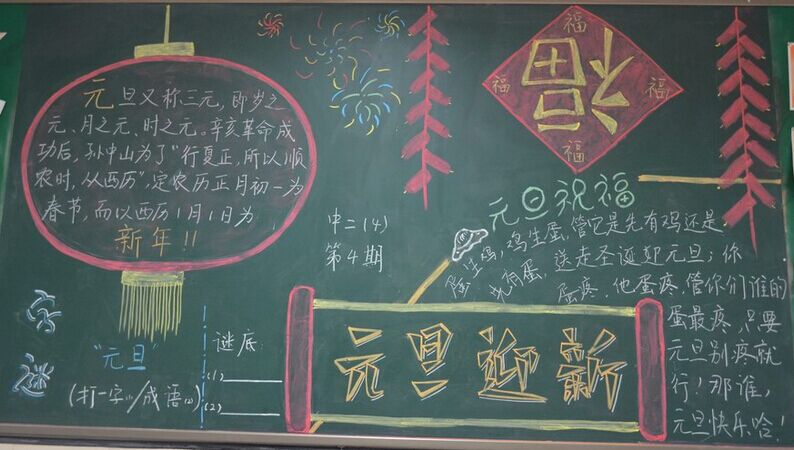 元旦又称三元,即岁之
元、月之元、时之元。辛亥革命成
功后,孙中山为了"行夏正,所以顺
农时,从西历",定农历正月初一为
春节,而以西历1月1日为
新年!!
福
福
福
福
福
中二(4)
第4期
元旦祝福
蛋生鸡,鸡生蛋,管它是先有鸡还是
先有蛋,送走圣诞迎元旦;你
蛋疼,他蛋疼,管你们谁的
蛋最疼,只要
元旦别疼就
行!那谁,
元旦快乐哈!
元旦迎新
字谜
"元旦"
(打一字(1)/成语(2))
谜底:
(1)
(2)